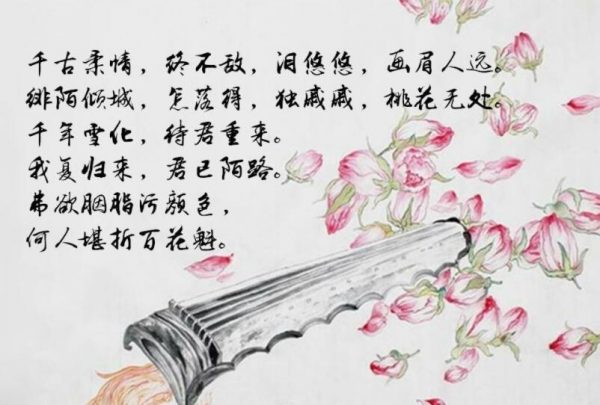 千古柔情，终不敌，泪悠悠，画眉人远。
绯陌倾城，怎落得，独戚戚，桃花无处。
千年雪化，待君重来。
我复归来，君已陌路。
弗欲胭脂污颜色，
何人堪折百花魁。